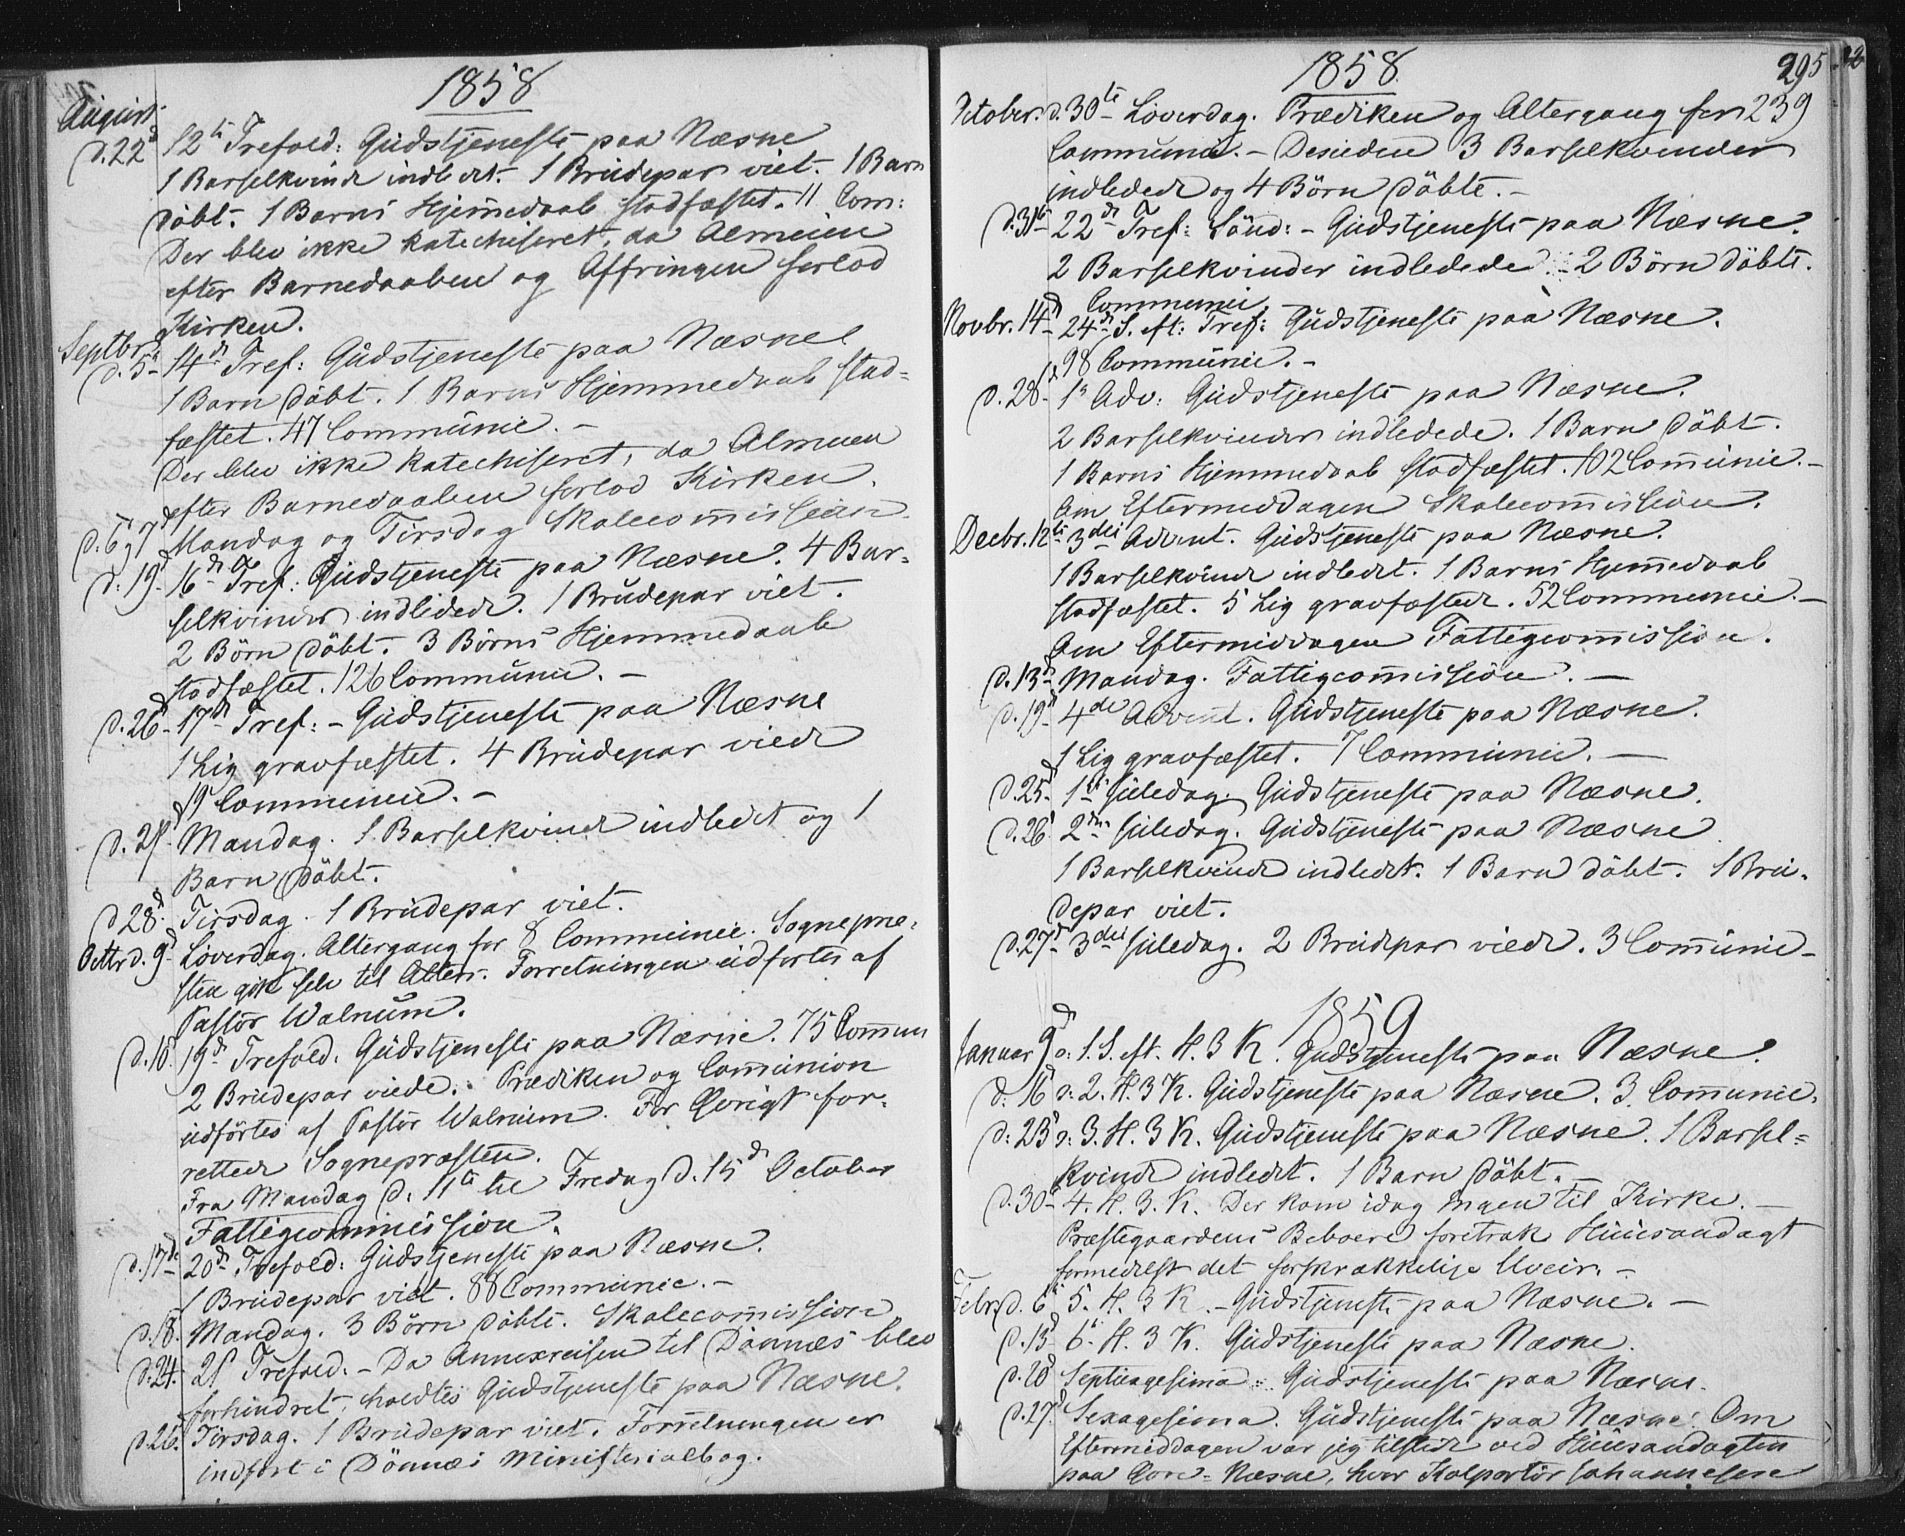 1858
August
d. 22d 12te Trefold: Gudstjeneste paa Næsne
1 Barselkvinde indledet. 1 Brudepar viet. 1 Barn
döbt. 1 Barns Hjemmedaab stadfæstet. 11 Com:
Der blev ikke katechiseret, da Almuen
efter Barnedaaben og Offringen forlod
Kirken.
Septbr.
d. 5te 14de Tref: Gudstjeneste paa Næsne
1 Barn döbt. 1 Barns Hjemmedaab stad=
fæstet. 47 Communic. –
Der blev ikke katechiseret, da Almuen
efter Barnedaaben forlod Kirken.
d. 6 og 7 Mandag og Tirsdag Skolecom̄ission
d. 19d 16de Tref: Gudstjeneste paa Næsne. 4 Bar=
selkvinder indledede. 1 Brudepar viet.
2 Börn döbt. 3 Börns Hjemmedaab
stadfæstet. 126 Communic. –
d. 26d 17de Tref: – Gudstjeneste paa Næsne
1 Lig gravfæstet. 4 Brudepar viede
19 Communic. –
d. 27 Mandag. 1 Barselkvinde indledet og 1
Barn döbt.
d 28d Tirsdag. 1 Brudepar viet.
Octbr d. 9d Löverdag. Altergang for 8 Communic. Sognepræ=
sten gik selv til Alters. Forretningen udfortes af
Pastor Walnum.
d. 10 19de Trefold: Gudstjeneste paa Næsne. 75 Com̄un
2 Brudepar viede. Prædiken og Com̄union
udförtes af Pastor Walnum. For Övrigt for=
rettede Sognepræsten.
Fra Mandag d. 11te til Fredag d. 15de October
Fattigcommission.
d. 17de 20de Trefold: Gudstjeneste paa Næsne.
1 Brudepar viet. 88 Communic. –
d. 18. Mandag. 3 Börn döbte. Skolecom̄ission
d. 24. 21 Trefold: – Da Annexreisen til Dönnæs blev
forhindret, holdtes Gudstjeneste paa Næsne.
d. 26. Tirsdag. 1 Brudepar viet. Forretningen er
indfört i Dönnæs Ministerialbog.
1858.
295
October. d. 30te Löverdag. Prædiken og Altergang for 239
Communic. – Desuden 3 Barselkvinder
indledede og 4 Börn döbte. –
d. 31te 22de Tref: Sönd: – Gudstjeneste paa Næsne.
2 Barselkvinder indledede. – 2 Börn döbte.
Communic –
Novbr. 14d 24de S. eft: Tref: Gudstjeneste paa Næsne.
98 Communic. –
d. 28d 1s Adv: Gudstjeneste paa Næsne.
2 Barselkvinder indledede. 1 Barn döbt.
1 Barns Hjemmedaab stadfæstet. 102 Com̄unic. –
Om Eftermiddagen Skolecom̄ission.
Decbr. 12te 3die Advent. Gudstjeneste paa Næsne.
1 Barselkvinde indledet. 1 Barns Hjem̄edaab
stadfæstet. 5 Lig gravfæstede. 52 Communic. –
Om Eftermiddagen Fattigcom̄ission.
d. 13d Mandag. Fattigcom̄ission. –
d. 19d 4de Advent. Gudstjeneste paa Næsne.
1 Lig gravfæstet. 7 Communic. –
d. 25d 1ste Juledag. Gudstjeneste paa Næsne.
d. 26d 2den Juledag. Gudstjeneste paa Næsne
1 Barselkvinde indledet. 1 Barn döbt. 1 Bru=
depar viet.
d. 27d 3die Juledag. 2 Brudepar viede. 3 Com̄unic –
1859
Januar 9d D: 1. S. eft. H. 3 K. Gudstjeneste paa Næsne.
d. 16d D: 2. H. 3 K. Gudstjeneste paa Næsne. 3 Com̄unic.
d: 23d D: 3. H. 3 K. Gudstjeneste paa Næsne. 1 Barsel=
kvinde indledet. 1 Barn döbt. –
d. 30d 4. H. 3. K. Der kom idag Ingen til Kirke. –
Præstegaardens Beboere foretrak Huusandagt
formedelst det forskrækkelige Uveir. –
Febr. d. 6d 5. H. 3 K. – Gudstjeneste paa Næsne. –
d. 13d 6te H. 3 K. Gudstjeneste paa Næsne.
d. 20d Septuagesima: Gudstjeneste paa Næsne.
d. 27d Sexagesima. Gudstjeneste paa Næsne. Om
Eftermiddagen var jeg tilstede ved Huusandagten
paa Hore-Næsne, hvor Kolportör Johannesene